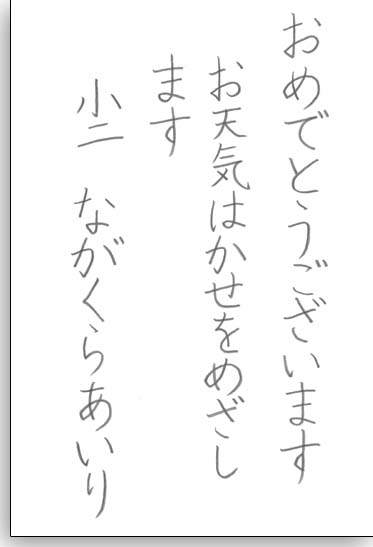 おめでとうございます
お天気はかせをめざし
ます
小二 ながくらあいり